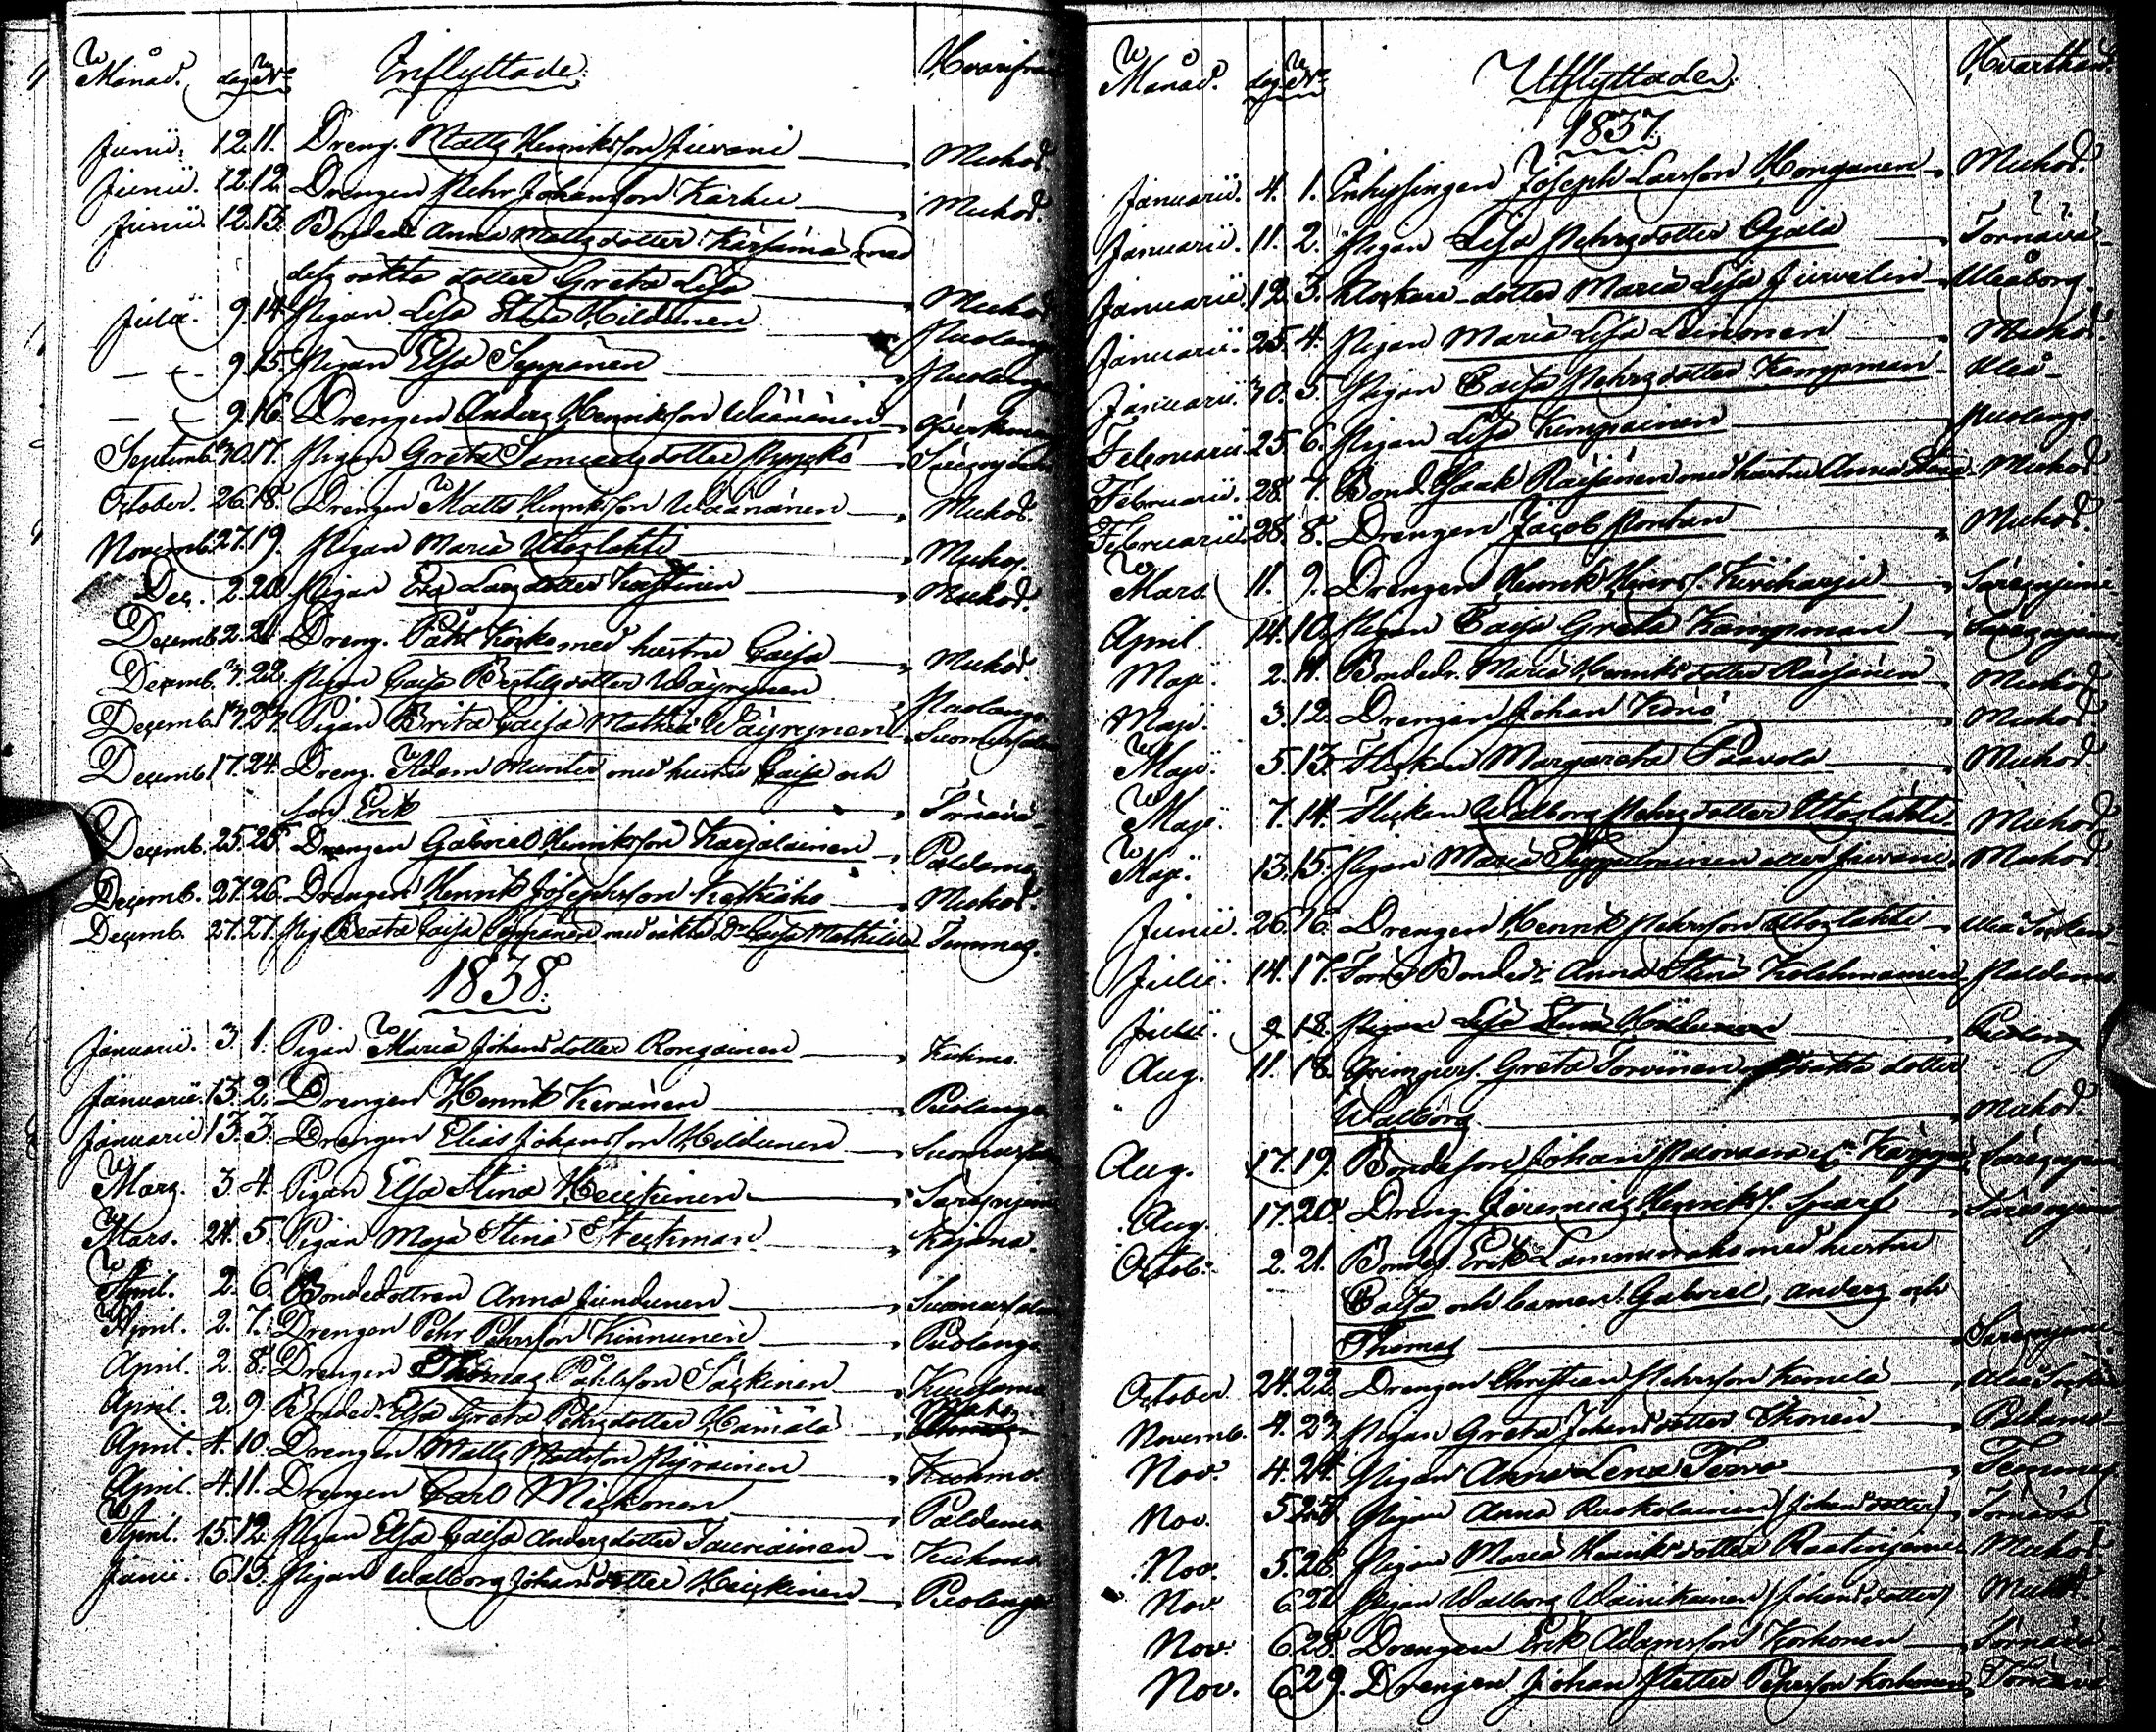 Månad. dag No Inflyttade. Hvarifrån
Junii. 12. 11. Dreng. Matts Henriksson Juvani Muhos.
Junii. 12. 12. Drengen Pehr Johansson Karhu Muhos.
Junii. 12. 13. Bonded. Anna Mattsdotter Kärsämä med
dess oäkta dotter Greta Lisa Muhos
Julii. 9. 14. Pigan Lisa Stina Hildunen Puolango
9. 15. Pigan Elsa Seppänen Puolango
9. 16. Drengen Anders Henriksson Wäänänen
Septemb. 30. 17. Pigan Greta Samuelsdotter Säresniemi
October. 26. 18. Drengen Matts Henriksson Wäänänen Muhos.
Novemb. 27. 19. Pigan Maria Utoslahti Muhos.
Dec. 2. 20. Pigan Eva Larsdotter Karstinen Muhos.
Decemb. 2. 21. Dreng. Påhl Koske med hustru Caisa Muhos.
Decemb. 3. 22. Pigan Caisa Bertilsdotter Wäyrynen Puolango
Decemb. 13. 23. Pigan Brita Caisa Mathia Wäyrynen Suomussalmi
Decemb. 17. 24. Dreng. Adam Munter med hustru Caisa och
son Erik Törnävä
Decemb. 25. 25. Drengen Gabriel Henriksson Karjalainen Paldamo
Decemb. 27. 26. Drengen Henrik Josephsson Muhos.
Decemb. 27. 27. Pig. Beata Caisa med oäkta Dr. Caisa Mathilda Temmes.
1838.
Januarii. 3. 1. Pigan Maria Johansdotter Rongainen Kuhmo
Januarii. 13. 2. Drengen Henrik Keränen Puolango
Januarii 13. 3. Drengen Elias Johansson Hildunen Suomussalmi
Mars. 3. 4. Pigan Elsa Stina Heickinen Säresniemi
Mars. 24. 5. Pigan Maja Stina Stickman Kajana.
April. 2. 6. Bondedottren Anna Jundunen Suomussalmi
April. 2. 7. Drengen Pehr Pehrsson Kinnunen Puolango
April. 2. 8. Drengen Thomas Påhlsson Säckinen Kuusamo
April. 2. 9. Bonded. Elsa Greta Pehrsdotter Hämälä Muhos
April. 4. 10. Drengen Matts Mattsson Pyräinen Kuhmo.
April. 4. 11. Drengen Carl Mickonen Paldamo
April. 15. 12. Pigan Elsa Caisa Andersdotter Tauriainen Kuhmo
Junii. 6. 13. Pigan Walborg Johansdotter Heickinen Puolango
Månad. dag No Utflyttade. Hvarthän.
1837.
Januarii. 4. 1. Inhysingen Joseph Larsson Honganen Muhos.
Januarii. 11. 2. Pigan Lisa Pehrsdotter Ojala Törnävä
Januarii. 12. 3. Klockare-dotter Maria Lisa Jurvelin Uleåborg.
Januarii. 25. 4. Pigan Maria Lisa Leinonen Muhos.
Januarii. 30. 5. Pigan Caisa Pehrsdotter Kampman Uleå
Februarii 25. 6. Pigan Lisa Kemppainen Puolango
Februarii. 28. 7. Bond. Isaak Räisänen med hustru Anna Lena Muhos
Februarii 28. 8. Drengen Jacob Pontan Muhos.
Mars. 11. 9. Drengen Henrik Henrs. Kiviharju Säresniemi
April. 14. 10. Pigan Caisa Greta Kampman Säresniemi
Maji. 2. 11. Bondedr. Maria Henriksdotter Räisänen Muhos
Maji. 3. 12. Drengen Johan Könö Muhos
Maji. 5. 13. Flickan Margareta Paavola Muhos
Maji. 7. 14. Flickan Walborg Pehrsdotter Utoslahti Muhos
Maji. 13. 15. Pigan Maria eller Juvani Muhos
Junii. 26. 16. Drengen Henrik Pehrsson Utoslahti Uleå Sochen
Julii. 14. 17. Bondedr. Anna Stina Kolehmainen Paldamo
Julii. 9. 18. Pigan Lisa Stina Hildunen Puolang
Aug. 11. 18. Greta Torvinen oäkta dotter
Walborg Muhos.
Aug. 17. 19. Bondeson Johan Karppi Säresniemi
Aug. 17. 20. Dreng. Jeremias Henrikss. Sparf Säresniemi
Octob. 2. 21. Bondes. Erik Lammasaho med hustru
Caisa och barnen Gabriel, Anders och
Thomas Säresniemi
October. 24. 22. Drengen Christian Pehrsson Kemilä Uleå Sochen
Novemb. 4. 23. Pigan Greta Johansdotter Ihonen
Nov. 4. 24. Pigan Anna Lena Terva Temmes
Nov. 5. 25. Pigan Anna Ruokolainen (Johansdotter) Törnävä
Nov. 5. 26. Pigan Maria Henriksdotter Raatiniemi Muhos
Nov. 6. 27. Pigan Walborg Wäinikainen (Johansdotter) Muhos
Nov. 6. 28. Drengen Erik Adamsson Korhonen Törnävä
Nov. 6. 29. Drengen Johan Petter Pehrsson Korhonen Törnävä